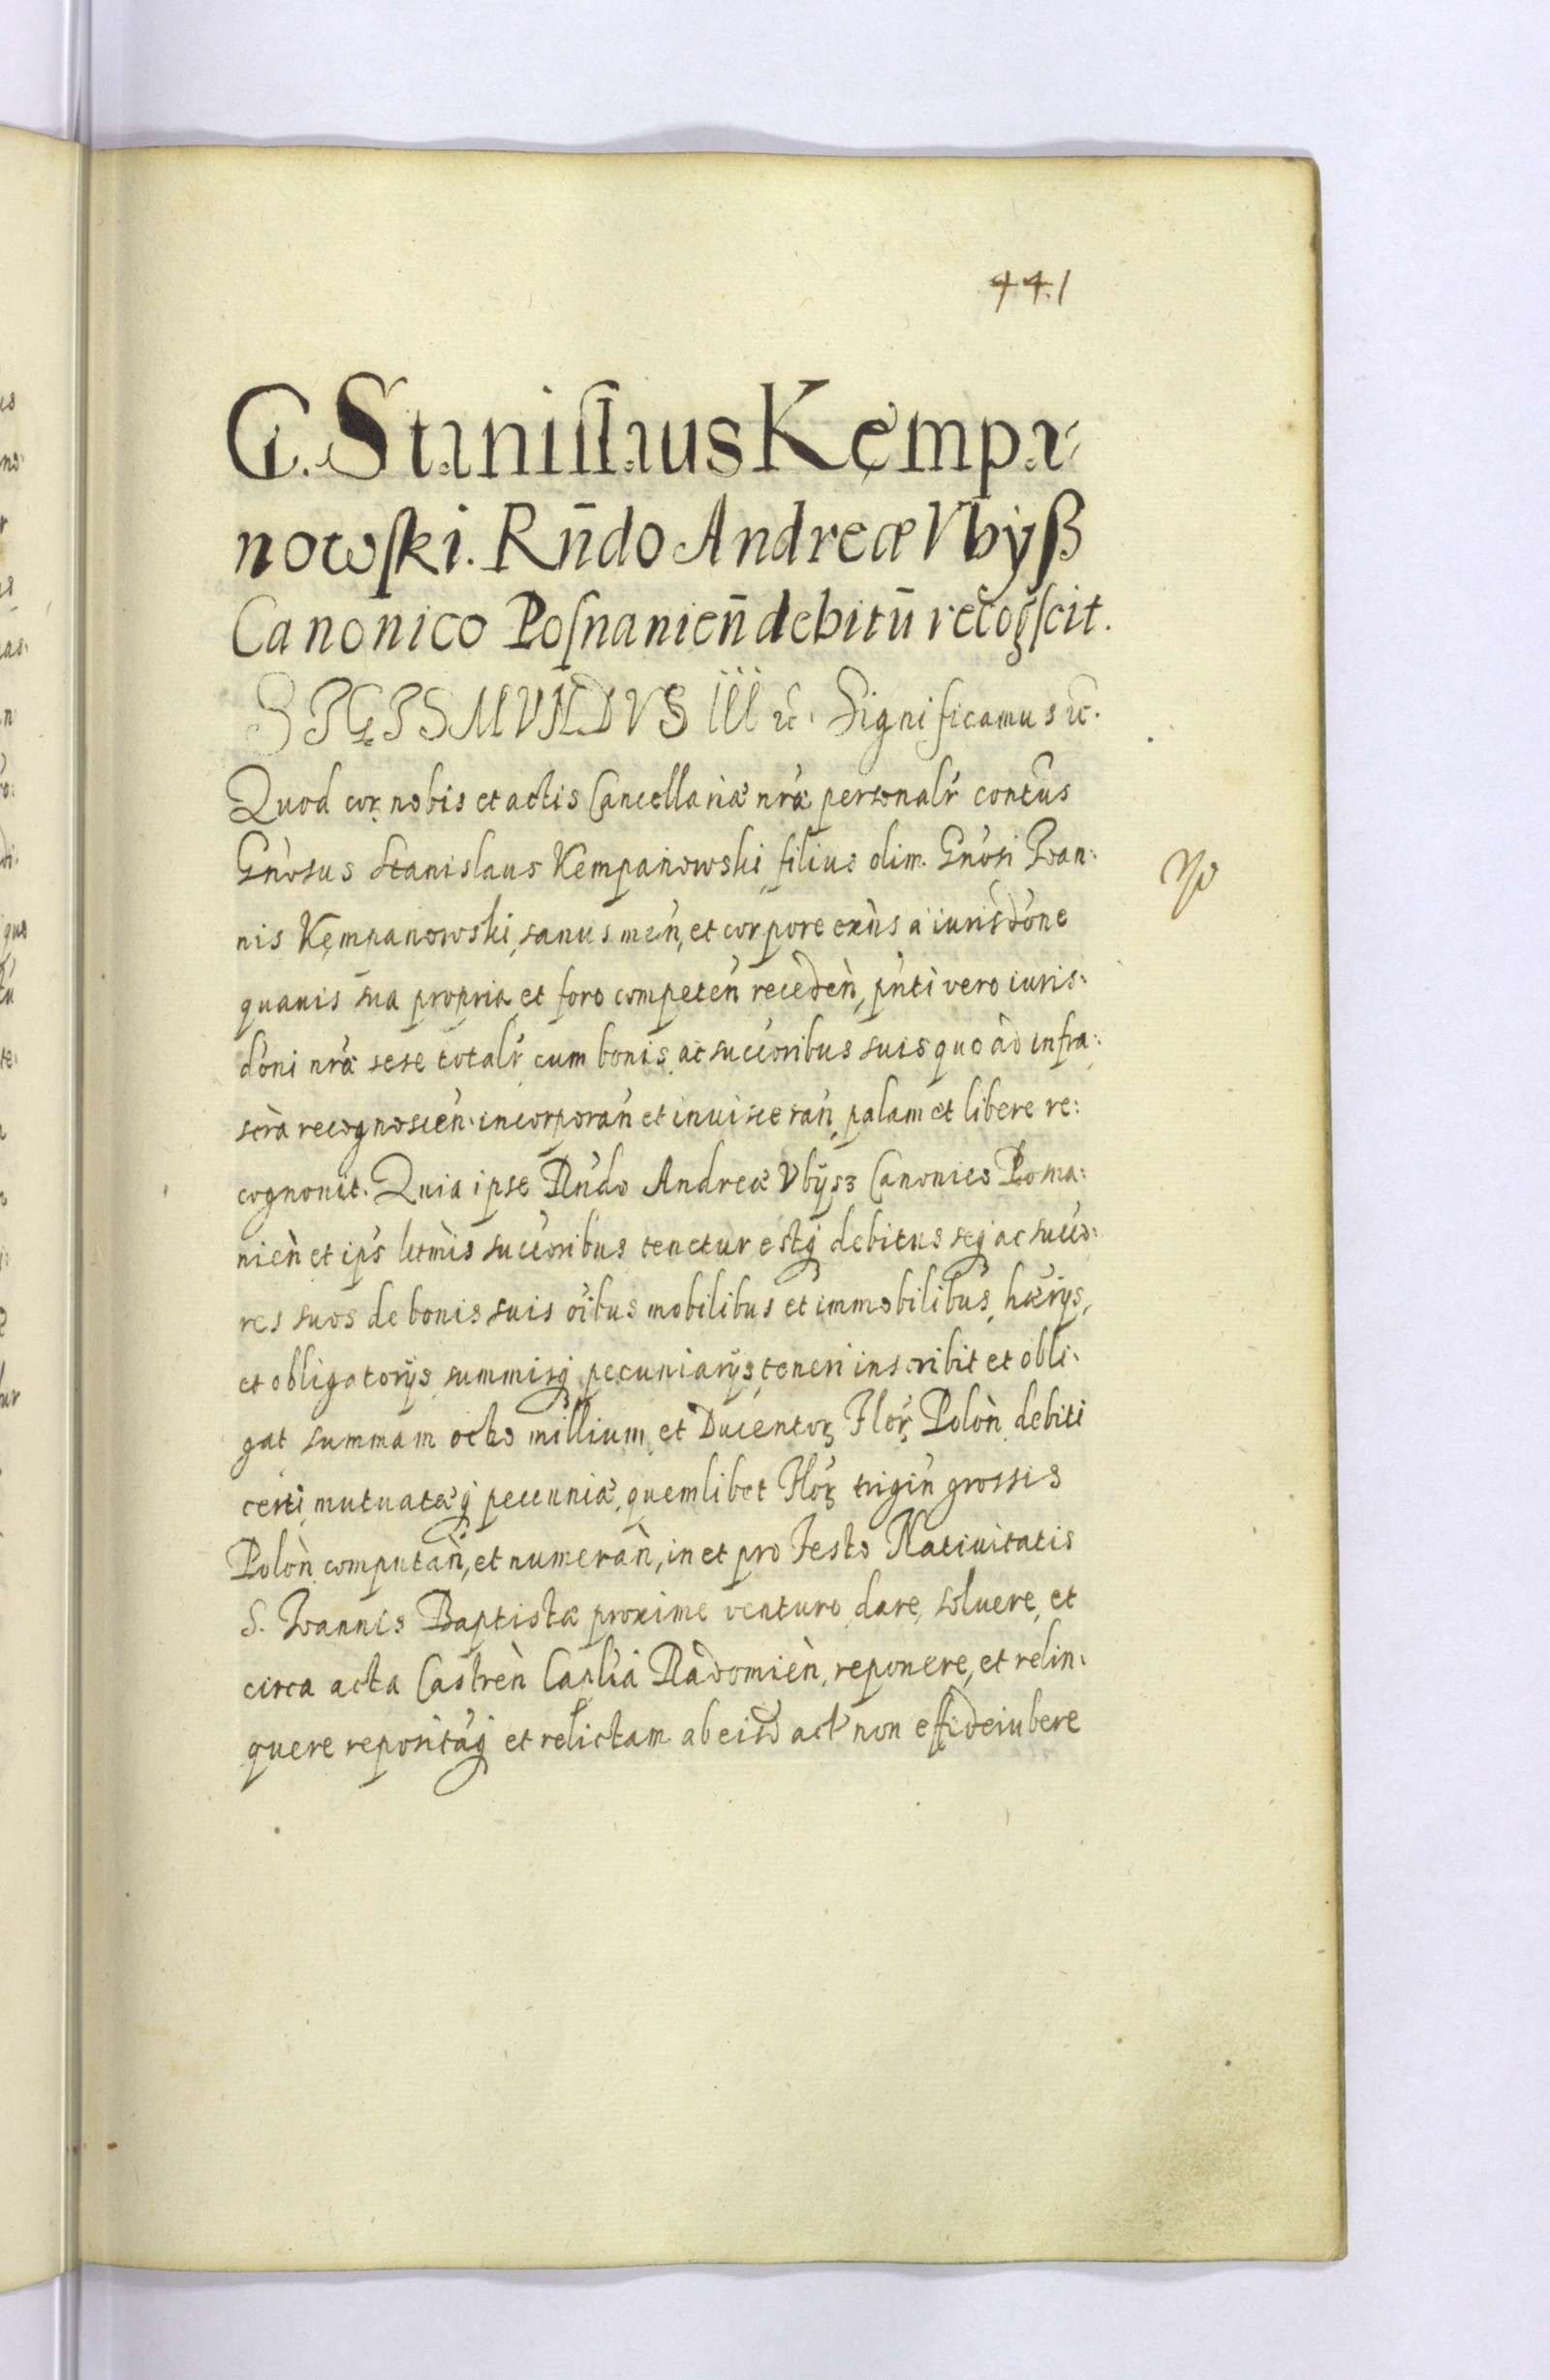 441
G. Staniſlaus Kęmpa-
nowſki. Rn̄do Andreæ Vbÿß
Canonico Poſnanien̄ debitū recogſcit.
SIGISMVNDVS III ec. Significamus ec.
Quod cor. nobis et actis Cancellariæ nr̃æ personalr̃ contus
Gnosus Stanislaus Kempanowski, filius olim Gnosi Ioan:
nis Kęmpanowski, sanus men, et corpore exñs a iurisdone
quauis sua propria et foro competeñ recedeñ, pñti vero iuris:
doni nr̃æ sese totalr̃ cum bonis ac succoribus suis quo ad infra:
scr̃a recognoscen. incorporañ et inuisceran, palam et libere re:
cognouit. Quia ipse Rñdo Andreæ Vbÿsz Canonico Posna:
nieñ et ips̃ letmis succoribus tenetur estq̃ debitus seq̃ ac succo:
res suos de bonis suis oĩbus mobilibus et immobilibus, hærÿs,
et obligatorÿs summisq̃ pecuniarÿs, teneri inscribit et obli:
gat summam octo millium et Ducentor̃ Flor̃ Poloñ debiti
certi, mutuatæq̃ pecuniæ, quemlibet Flor̃ trigiñ grossis
Poloñ computañ, et numerañ, in et pro Festo Natiuitatis
S. Ioannis Baptistæ proxime venturo, dare, soluere, et
circa acta Castreñ Caplĩa Radomieñ, reponere, et relin:
quere repositaq̃ et relictam ab eisd act non effideiubere